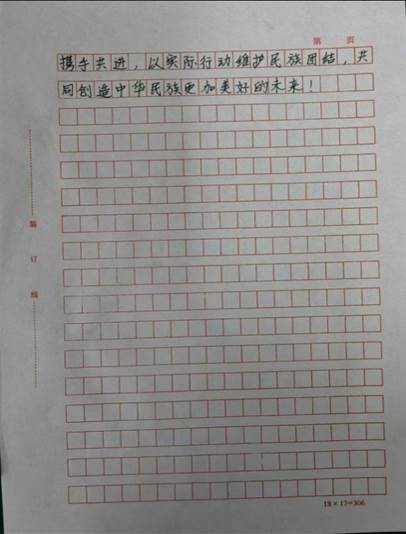 第 页
携手共进，以实际行动维护民族团结，共
同创造中华民族更加美好的未来！
装
订
线
18×17=306